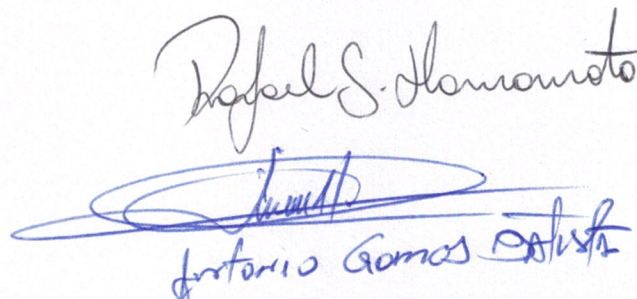 Rafael S. Hamamoto
Antonio Gomes Batista